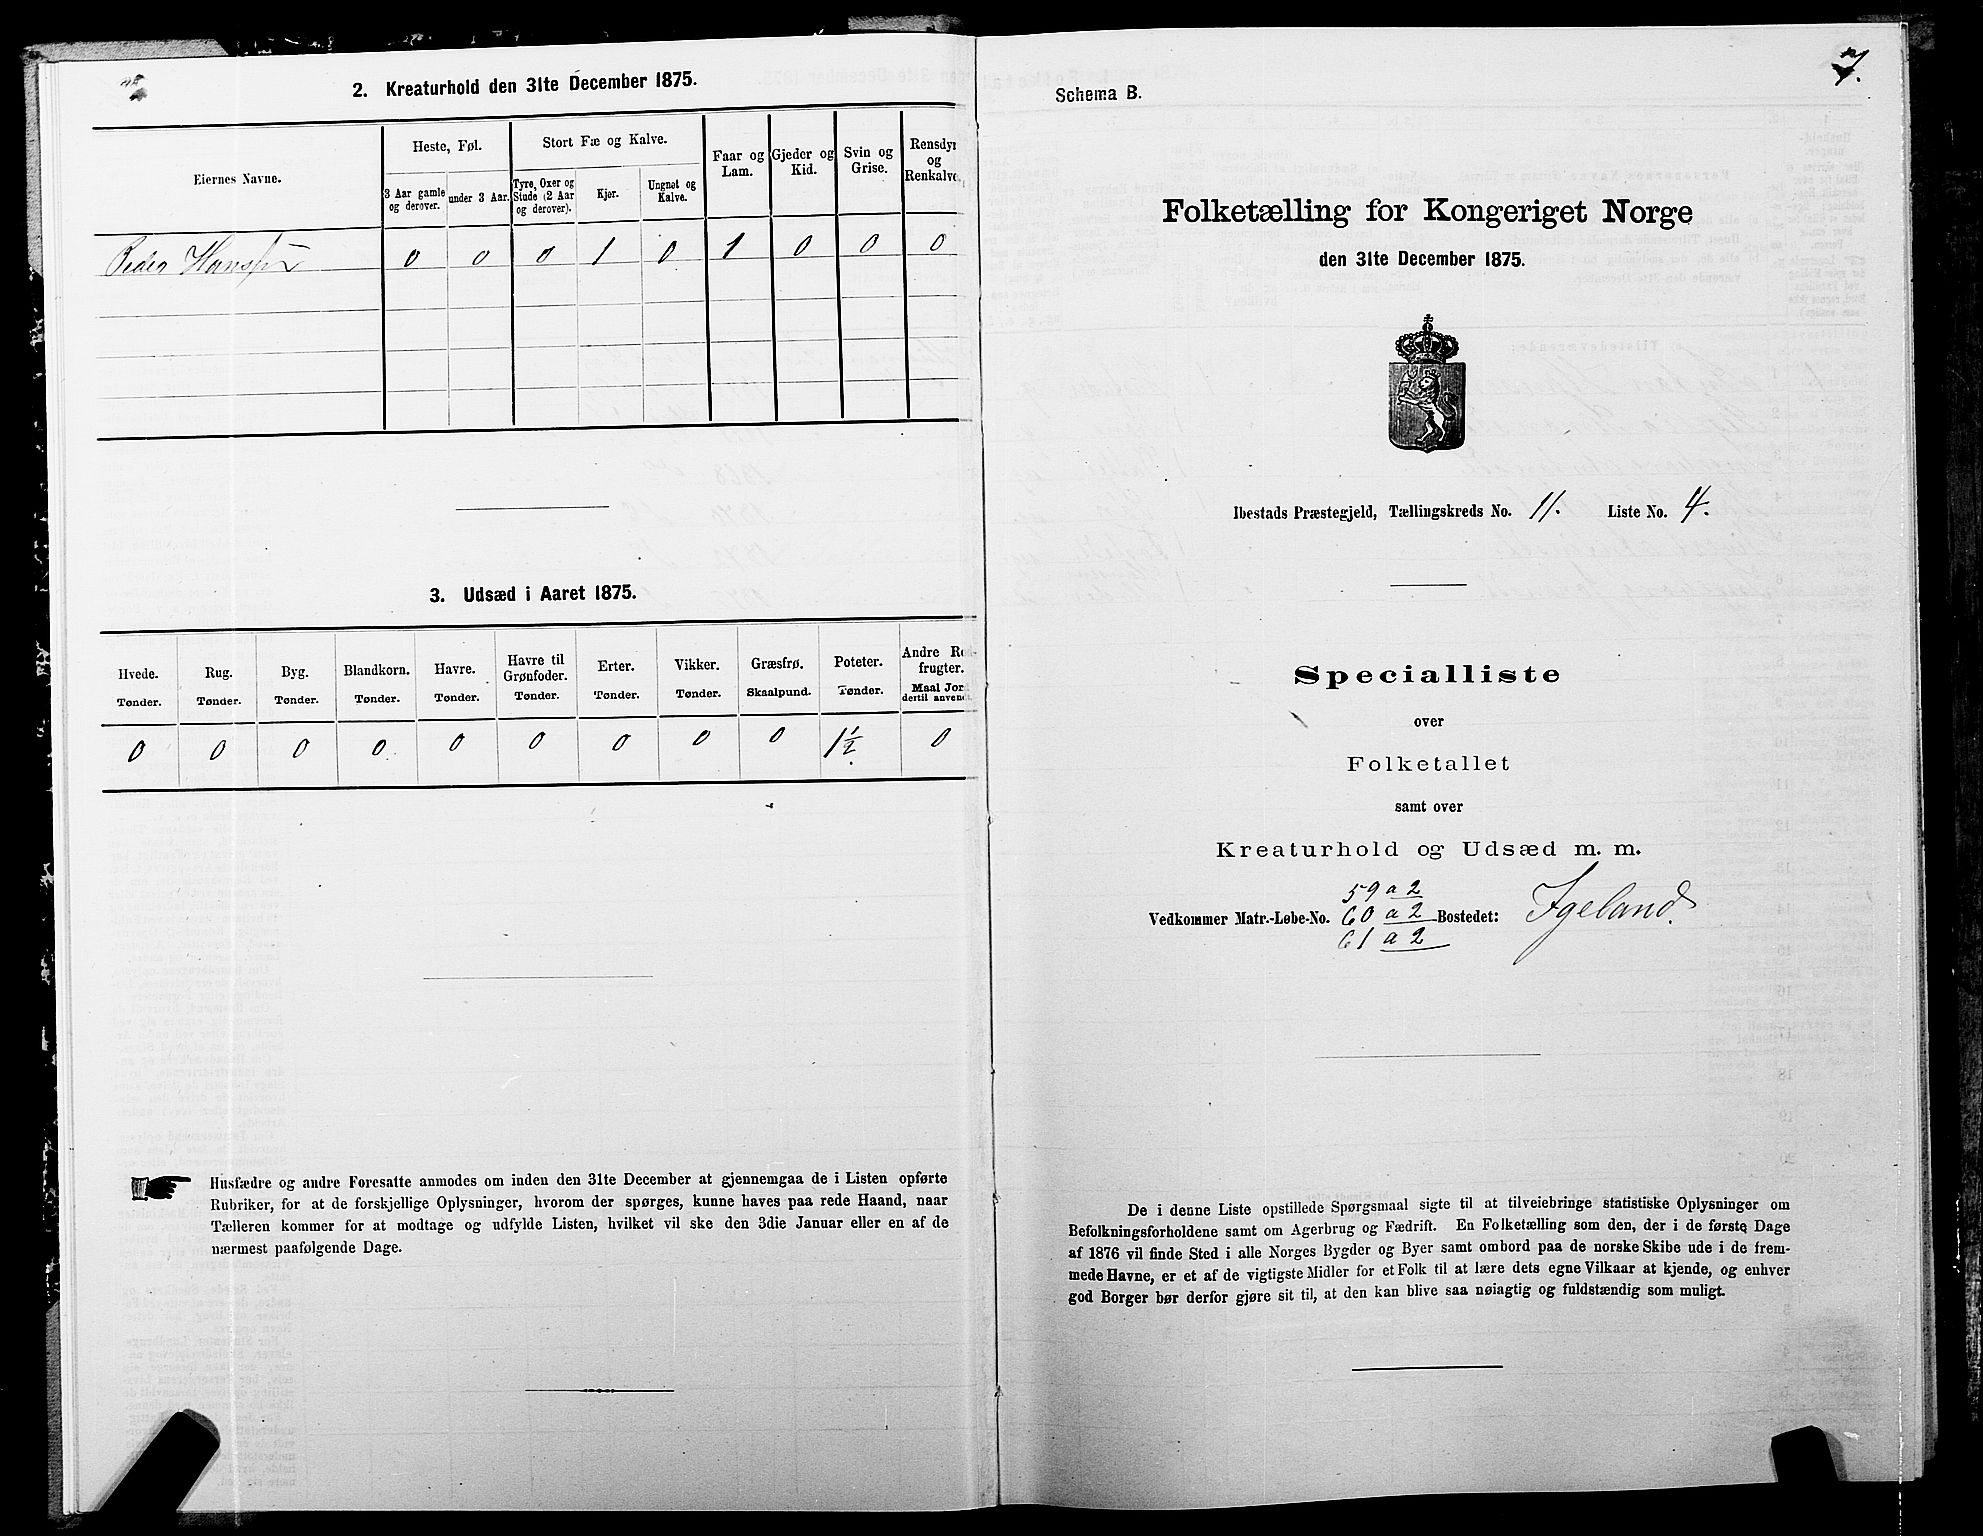 2. Kreaturhold den 31te December 1875.
Eiernes Navne.
Heste, Føl.
Stort Fæ og Kalve.
Faar og Lam.
Gjeder og Kid.
Svin og Grise.
Rensdyr og Renkalve.
3 Aar gamle og derover.
under 3 Aar.
Tyre, Oxer og Stude (2 Aar og derover).
Kjør.
Ungnøt og Kalve.
Peder Hanssøn 0 0 0 1 0 1 0 0 0
3. Udsæd i Aaret 1875.
Hvede. Rug. Byg. Blandkorn. Havre. Havre til Grønfoder. Erter. Vikker. Græsfrø. Poteter. Andre Rodfrugter.
Tønder. Tønder. Tønder. Tønder. Tønder. Tønder. Tønder. Tønder. Skaalpund. Tønder. Maal Jord dertil anvendt.
0 0 0 0 0 0 0 0 0 1½ 0
Husfædre og andre Foresatte anmodes om inden den 31te December at gjennemgaa de i Listen opførte
Rubriker, for at de forskjellige Oplysninger, hvorom der spørges, kunne haves paa rede Haand, naar
Tælleren kommer for at modtage og udfylde Listen, hvilket vil ske den 3die Januar eller en af de
nærmest paafølgende Dage.
Schema B.
Folketælling for Kongeriget Norge
den 31te December 1875.
Ibestads Præstegjeld, Tællingskreds No. 11. Liste No. 4.
Specialliste
over
Folketallet
samt over
Kreaturhold og Udsæd m. m.
59 a 2
Vedkommer Matr.-Løbe-No. 60 a 2 Bostedet: Igeland.
61 a 2
De i denne Liste opstillede Spørgsmaal sigte til at tilveiebringe statistiske Oplysninger om
Befolkningsforholdene samt om Agerbrug og Fædrift. En Folketælling som den, der i de første Dage
af 1876 vil finde Sted i alle Norges Bygder og Byer samt ombord paa de norske Skibe ude i de frem-
mede Havne, er et af de vigtigste Midler for et Folk til at lære dets egne Vilkaar at kjende, og enhver
god Borger bør derfor gjøre sit til, at den kan blive saa nøiagtig og fuldstændig som muligt.